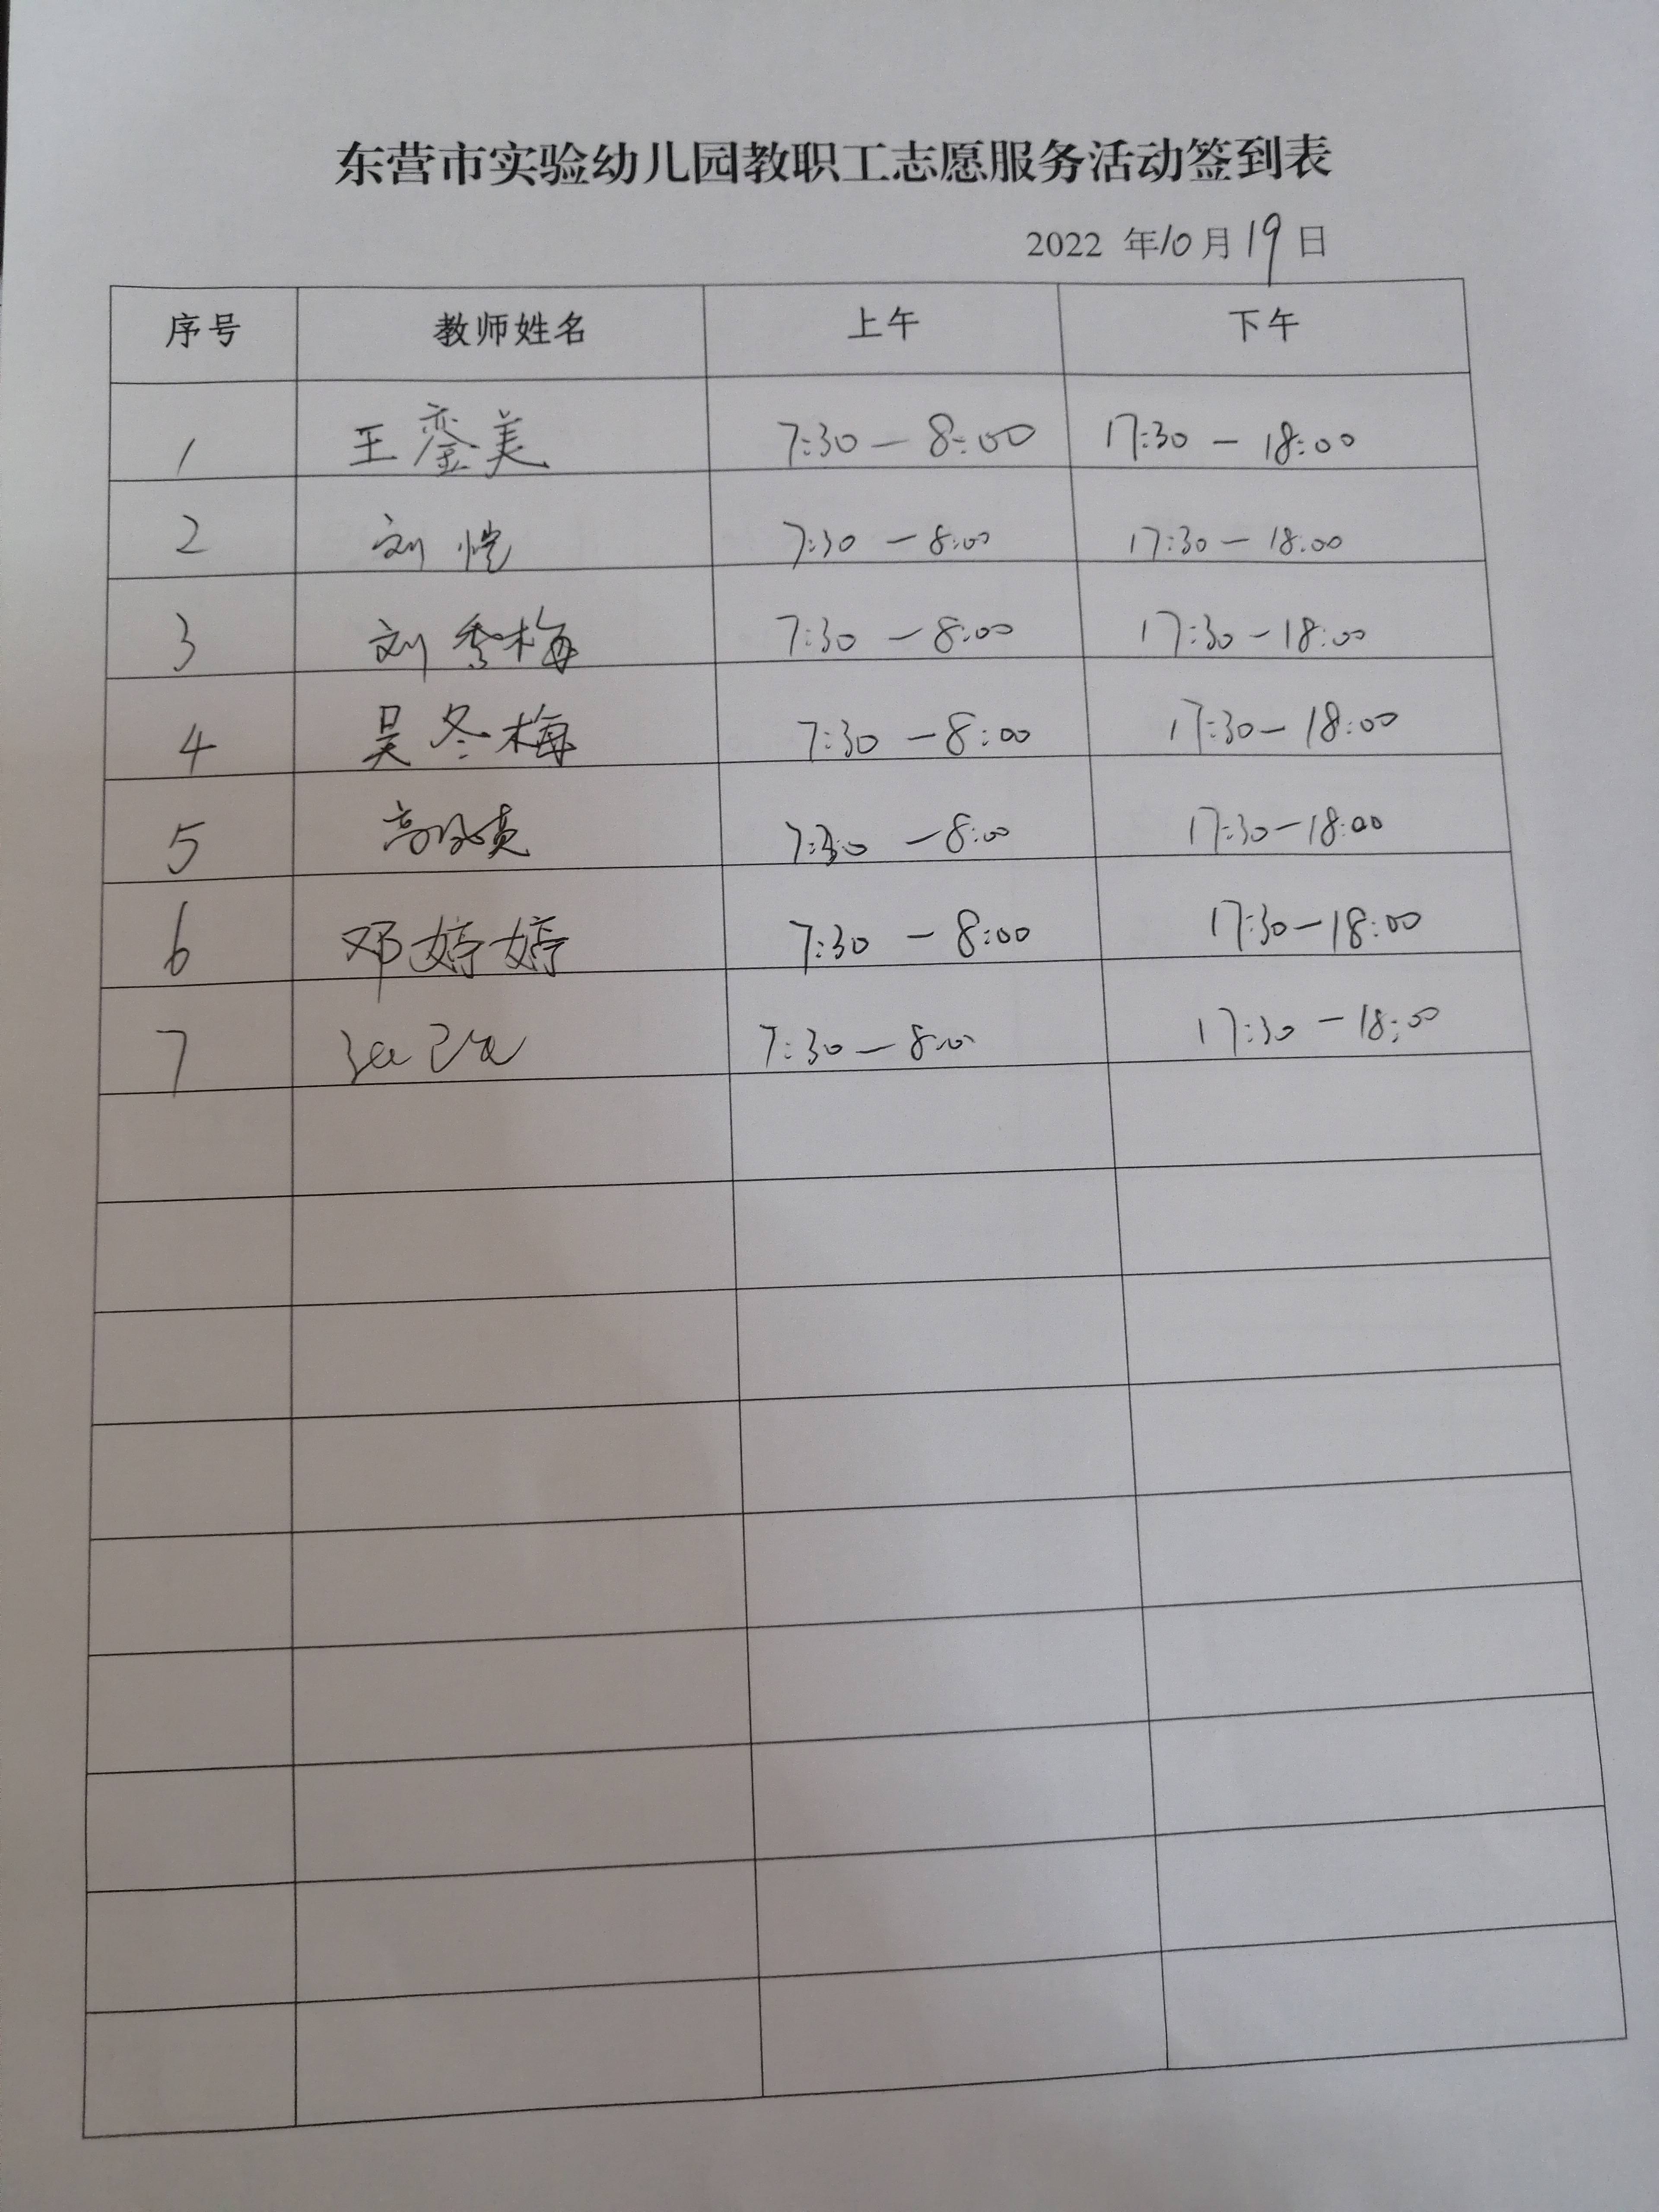 东营市实验幼儿园教职工志愿服务活动签到表
2022 年10月19日
序号 教师姓名 上午 下午
1 王銮美 7:30—8:00 17:30—18:00
2 刘恺 7:30—8:00 17:30—18:00
3 刘秀梅 7:30—8:00 17:30—18:00
4 吴冬梅 7:30—8:00 17:30—18:00
5 7:30—8:00 17:30—18:00
6 邓婷婷 7:30—8:00 17:30—18:00
7 7:30—8:00 17:30—18:00